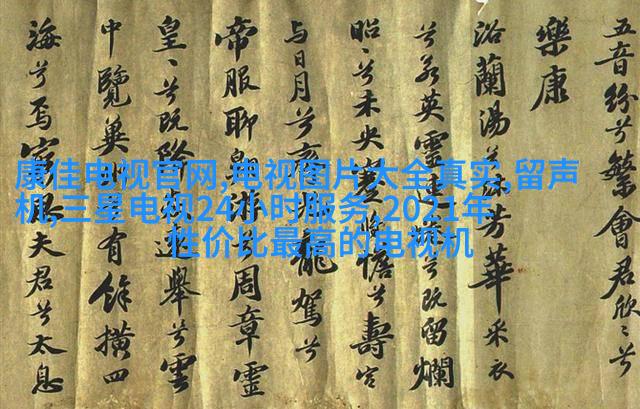 康佳电视官网,电视图片大全真实,留声
机,三星电视24小时服务,2021年
性价比最高的电视机
五音紛兮繁會君欣〻兮
樂康
浴蘭湯兮芳華采衣
兮若英靈兮既留爛
昭〻兮未央憺兮壽宮
与日月兮龍駕兮
帝服聊周章靈
皇〻兮既舉兮雲
中覽有餘橫四
海兮焉夫君兮太息